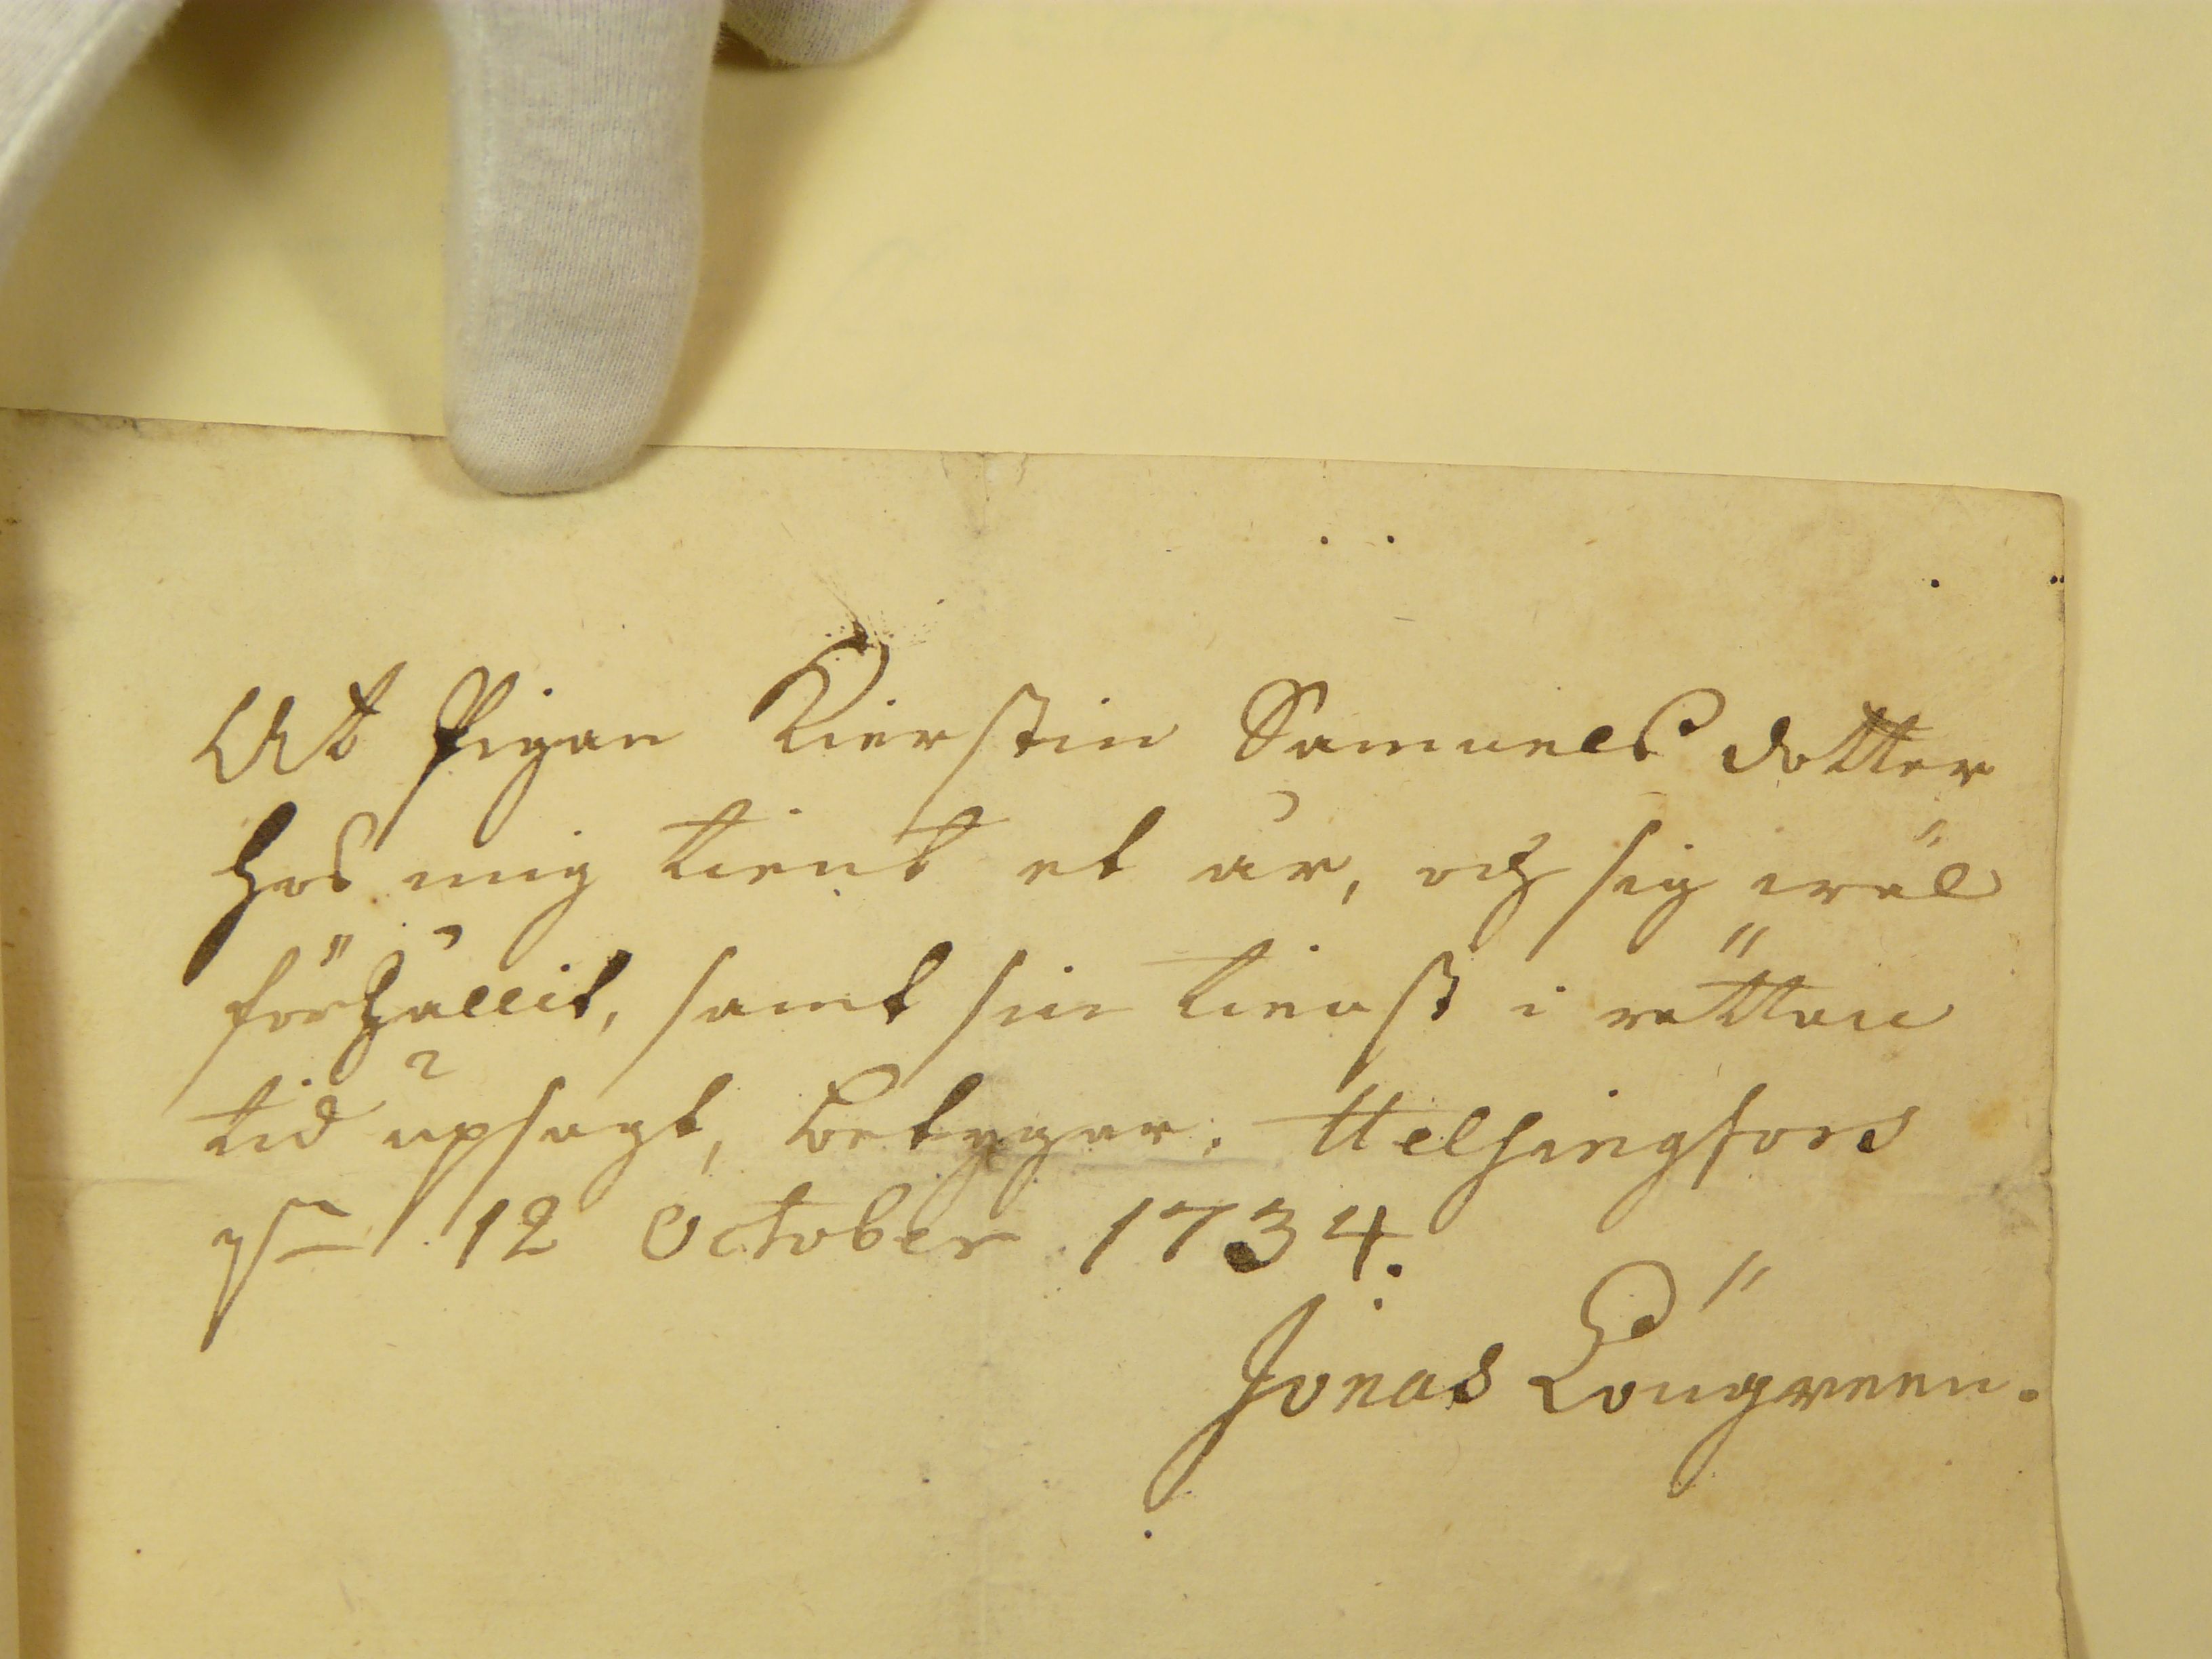 At Pigan Kierstin Samuels dotter
hos mig tient et år, och sig wäl
förhållit, samt sin tienst i rättan
tid upsagt, betygar. Helsingfors
12 October 1734.
Jonas Löngreen.